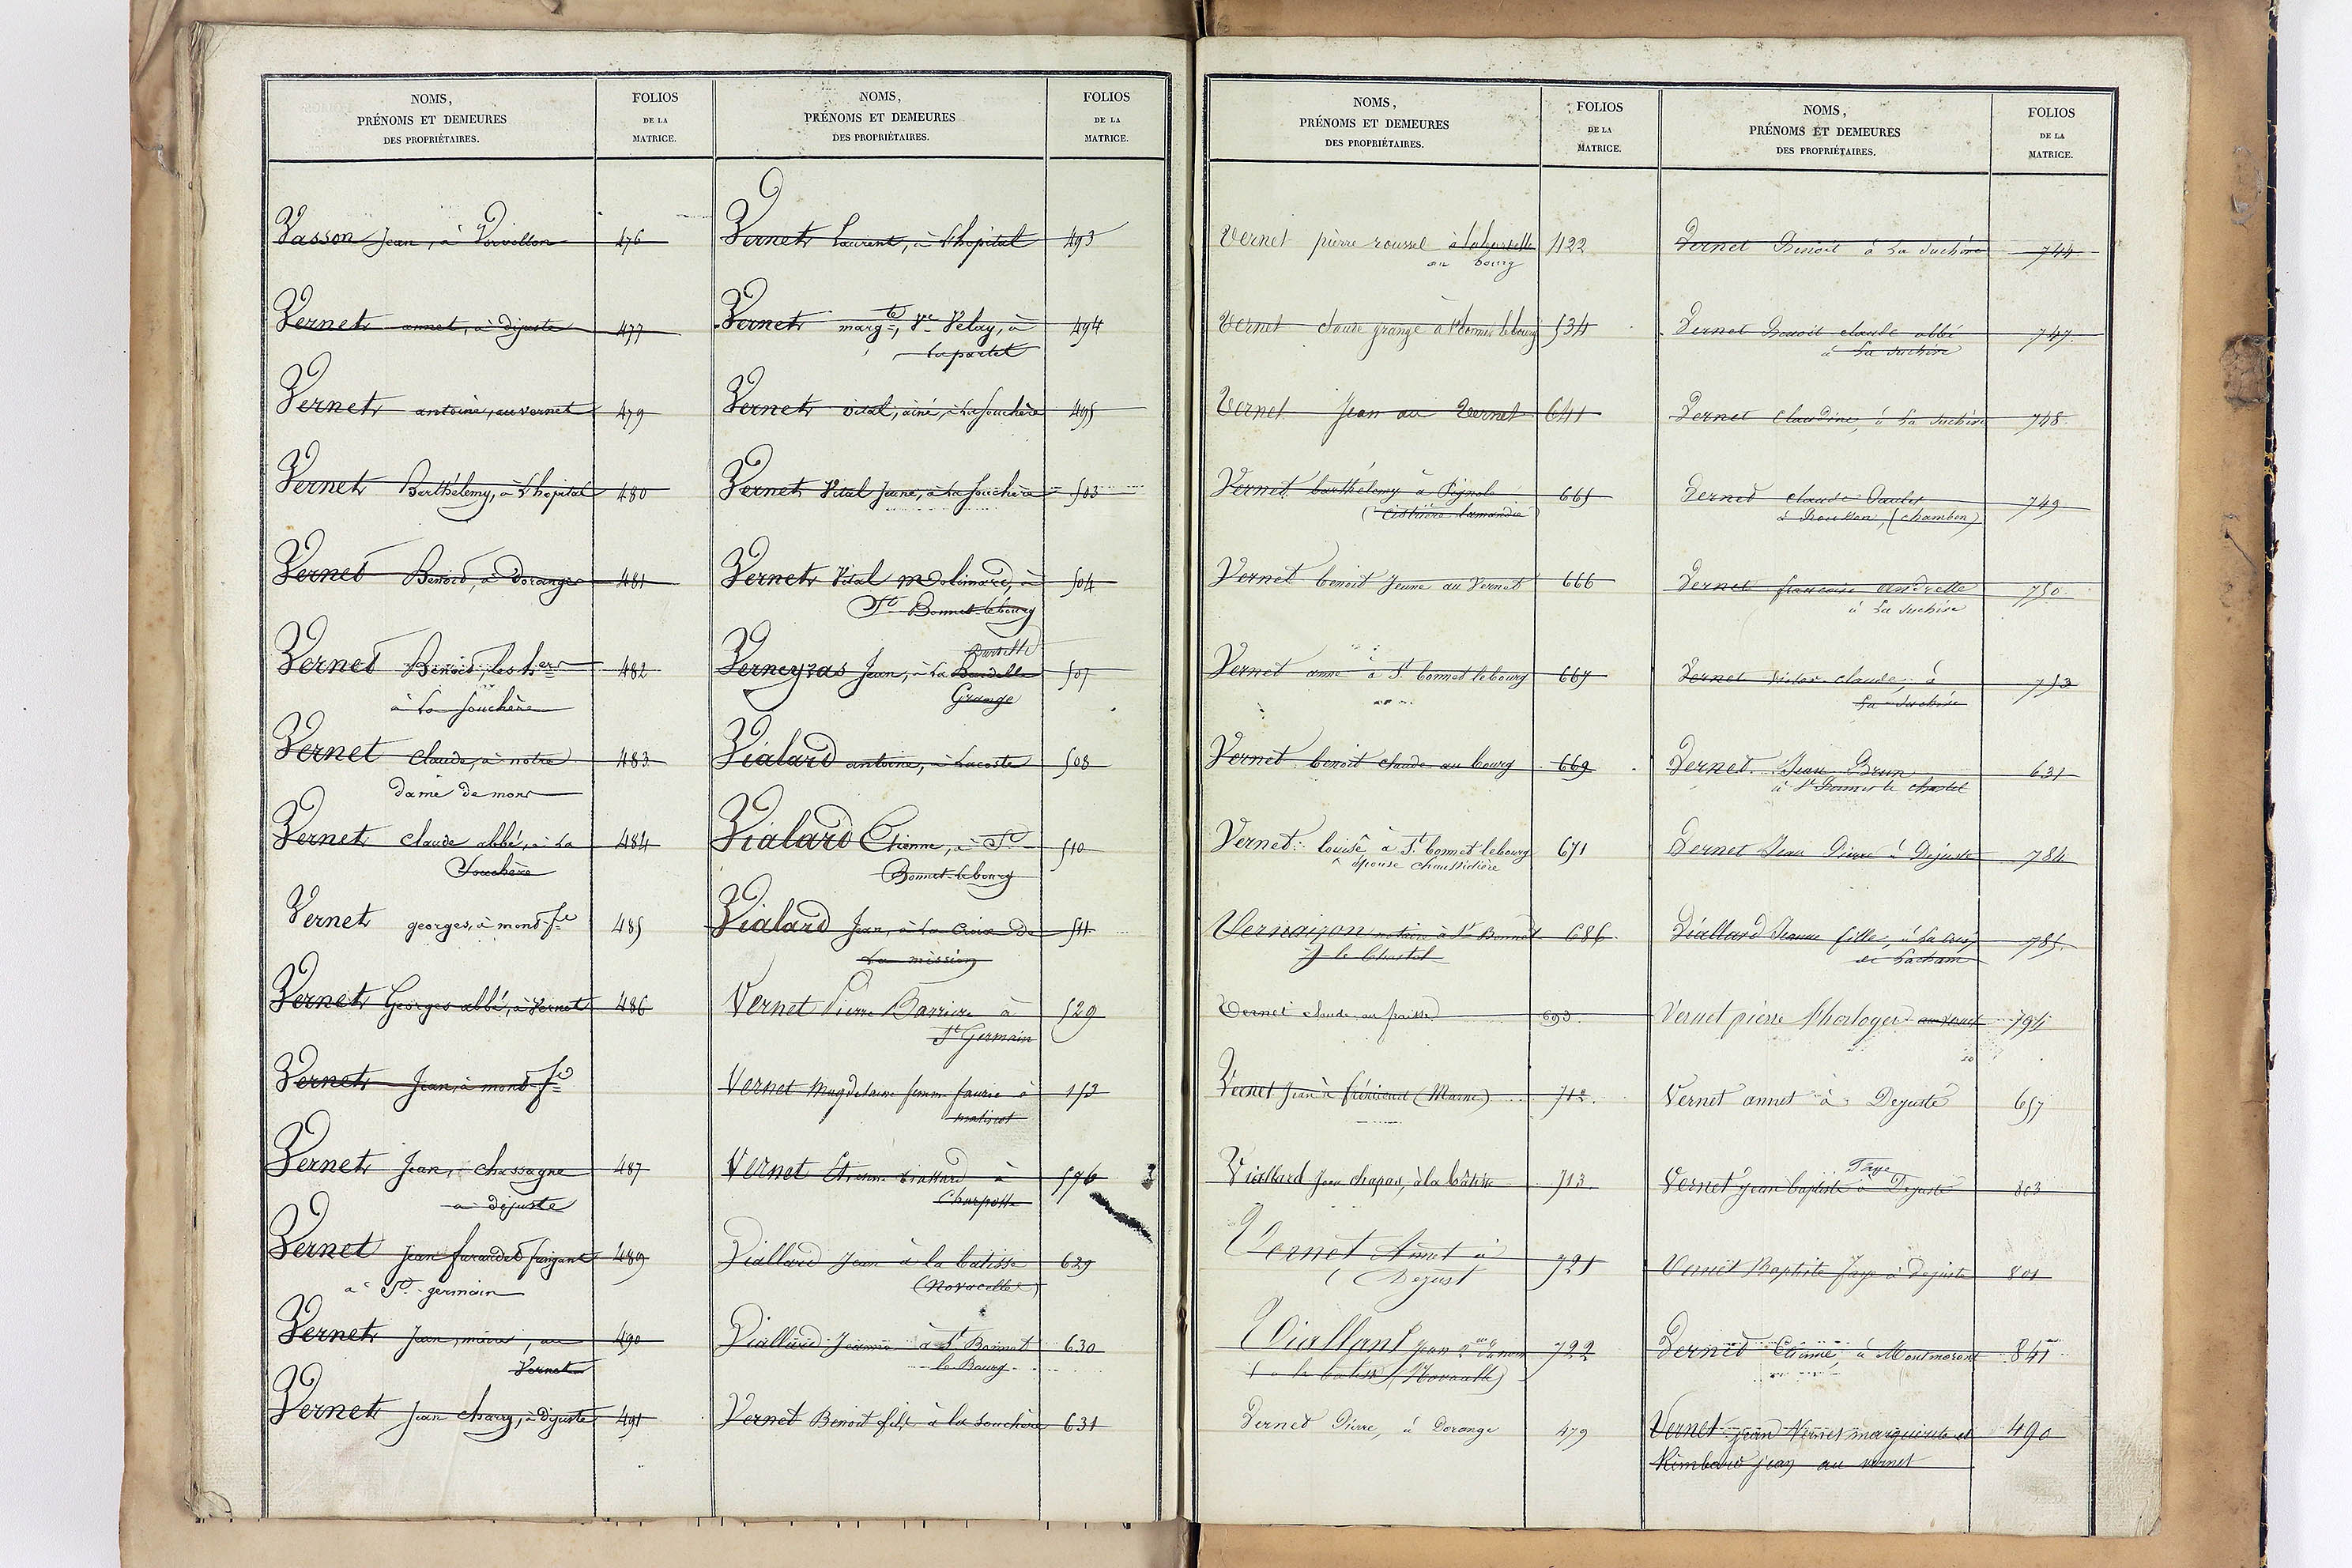 NOMS,
PRÉNOMS ET DEMEURES
DES PROPRIÉTAIRES.
FOLIOS
DE LA
MATRICE.
Vasson Jean, à Vorvollon 476
Vernet annet, à dijuste 477
Vernet antoine, au vernet 479
Vernet Barthélemy, à l'hopital 480
Vernet Benoit, à Doranges 481
Vernet Benoit, les hers 482
à la Souchère
Vernet Claude, à notre 483
dame de mons
Vernet claude abbé, à La 484
Souchère
Vernet georges, à mond 485
Vernet Georges abbé, à Vernet 486
Vernet Jean, à mond
Vernet Jean, chassagne 487
à dijuste
Vernet Jean farandes faigant 489
à St germain
Vernet Jean, au 490
Vernet
Vernet Jean chary, à dijuste 491
NOMS,
PRÉNOMS ET DEMEURES
DES PROPRIÉTAIRES.
FOLIOS
DE LA
MATRICE.
Vernet Laurent, à l'hopital 493
Vernet margte, Ve Velay, à 494
Vernet Vital, ainé, à La Souchère 495
Vernet Vital Jeune, à La Souchère 503
Vernet Vital molinard, à 504
St Bonnet-lebourg
Verneyras Jean, à La Bardelle 507
Grange
Vialard antoine, à Lacoste 508
Vialard Etienne, à St 510
Bonnet-lebourg
Vialard Jean, à La Croix de 511
La mission
Vernet Pierre Barriere à 529
St Germain
Vernet Magdelaine femme faurie à 153
Vernet Etienne viallard à 576
Charpotte
Viallard Jean à la batisse 629
(Novacelles)
Viallard Jeanne à St Bonnet 630
le Bourg
Vernet Benoit fils à la Souchère 631
NOMS,
PRÉNOMS ET DEMEURES
DES PROPRIÉTAIRES.
FOLIOS
DE LA
MATRICE.
Vernet pierre roussel 422
au bourg
Vernet claude grange à St bonnet lebourg 534
Vernet Jean au Vernet 641
Vernet barthélemy à Pignols 665
Vernet benoit Jeune au Vernet 666
Vernet anne à St bonnet lebourg 667
Vernet benoit claude au bourg 669
Vernet louise à St bonnet lebourg 671
épouse chaussidière
Vernaison notaire à St Bonnet 686
le Chastel
Vernet claude au 693
Vernet Jean à (Marne) 712
Viallard Jean chapas, à la bâtisse 713
Vernet Annet à 721
Dejust
Viallant Jean 722
à la batisse (Novacelle)
Vernet Pierre, à Dorange 479
NOMS,
PRÉNOMS ET DEMEURES
DES PROPRIÉTAIRES.
FOLIOS
DE LA
MATRICE.
Vernet Benoit à La Suchère 744
Vernet Benoit claude abbé 747
à La Suchère
Vernet Claudine, à La Suchère 748
Vernet claude 749
(chambon)
Vernet francoise 750
à La Suchère
Vernet Victor claude, à 753
La Suchère
Vernet Jean Brun 631
à St Bonnet le chastel
Vernet Jean Pierre à Dejuste 784
Viallard Jeanne fille, à La croix 785
de Lacham
Vernet pierre l'horloger 794
Vernet annet à Dejuste 657
Faye
Vernet Jean baptiste à Dejuste 803
Vernet Baptiste Faye à dejuste 801
Vernet Etienne, à Montmorond 841
Vernet jean Vernet marguerite et 490
Rimbaud jean au vernet